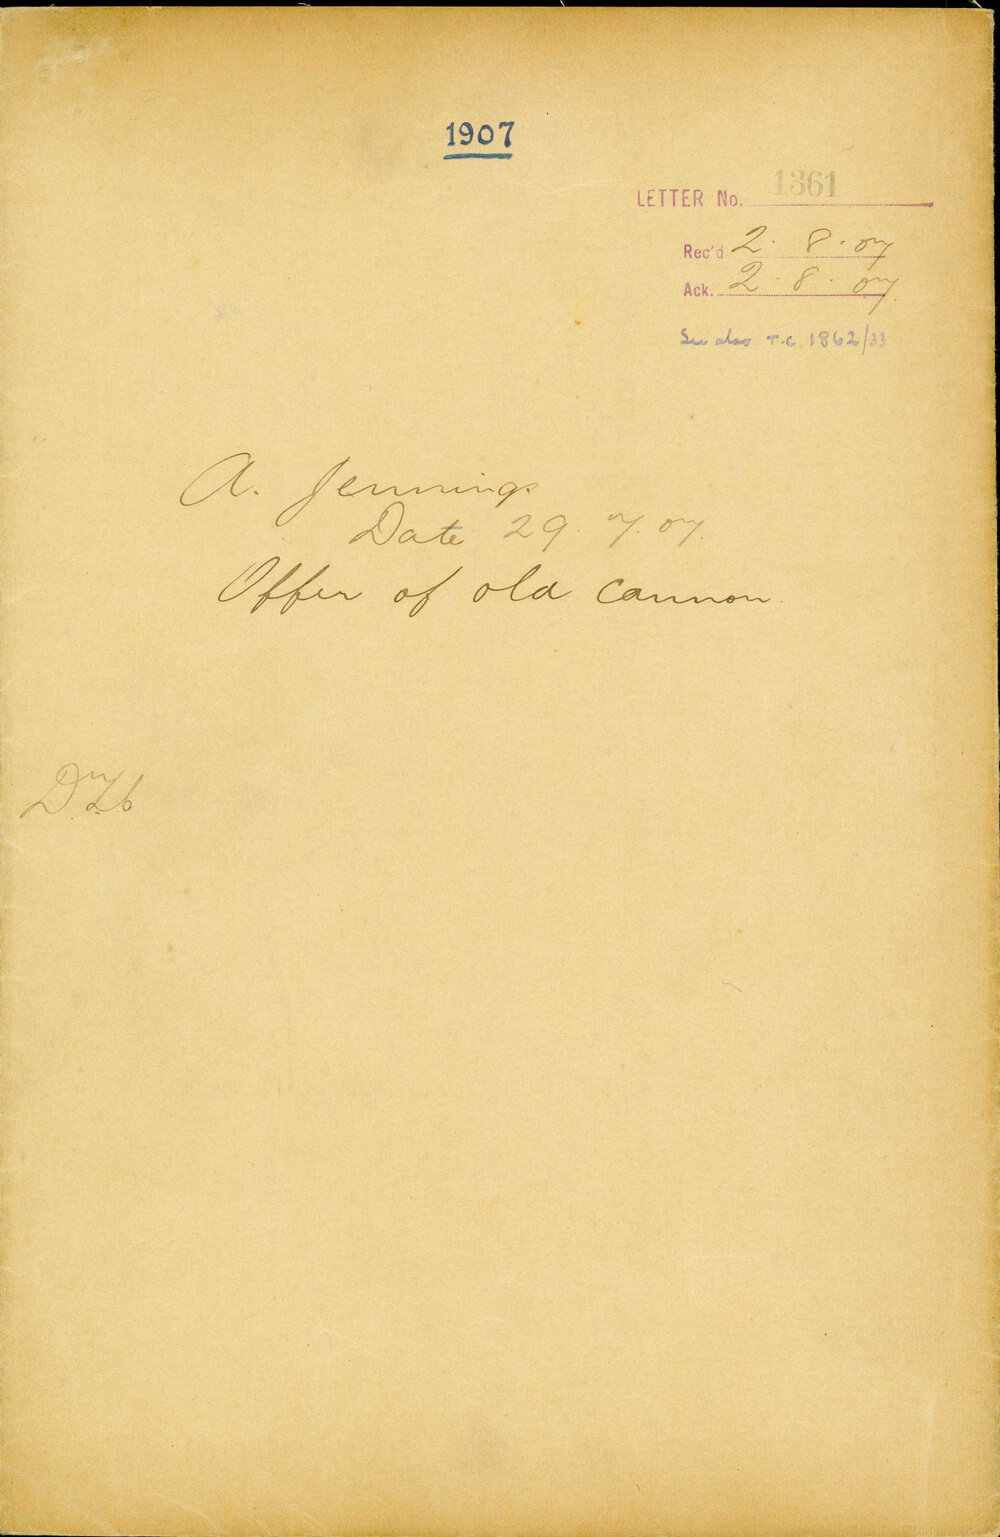 1907
LETTER No. 1361
Rec'd 2. 8. 07
Ack. 2. 8. 07.
See also T.C. 1862/33
A. Jennings
Date 29. 7. 07.
Offer of old cannon.